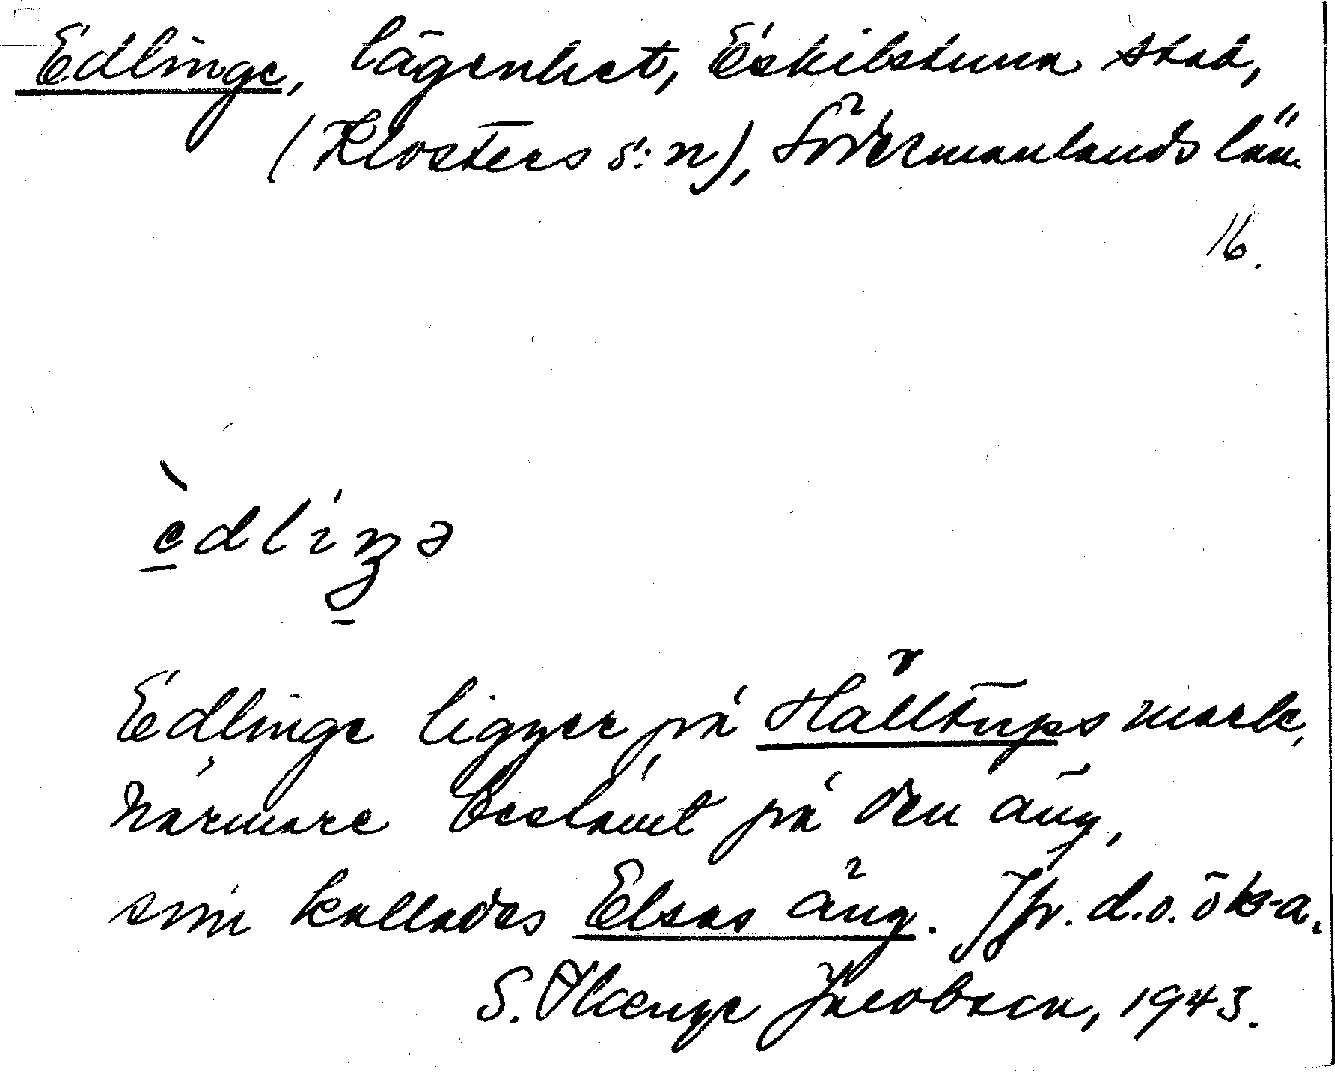 Edlinge, lägenhet, Eskilstuna stad,
(Klosters s:n), Södermanlands län.
16.
èdliŋə
Edlinge ligger på Hälltorps mark,
närmare bestämt på den äng,
som kallades Elsas äng. Jfr. d.o. ök-a.
S. Jacobson, 1943.